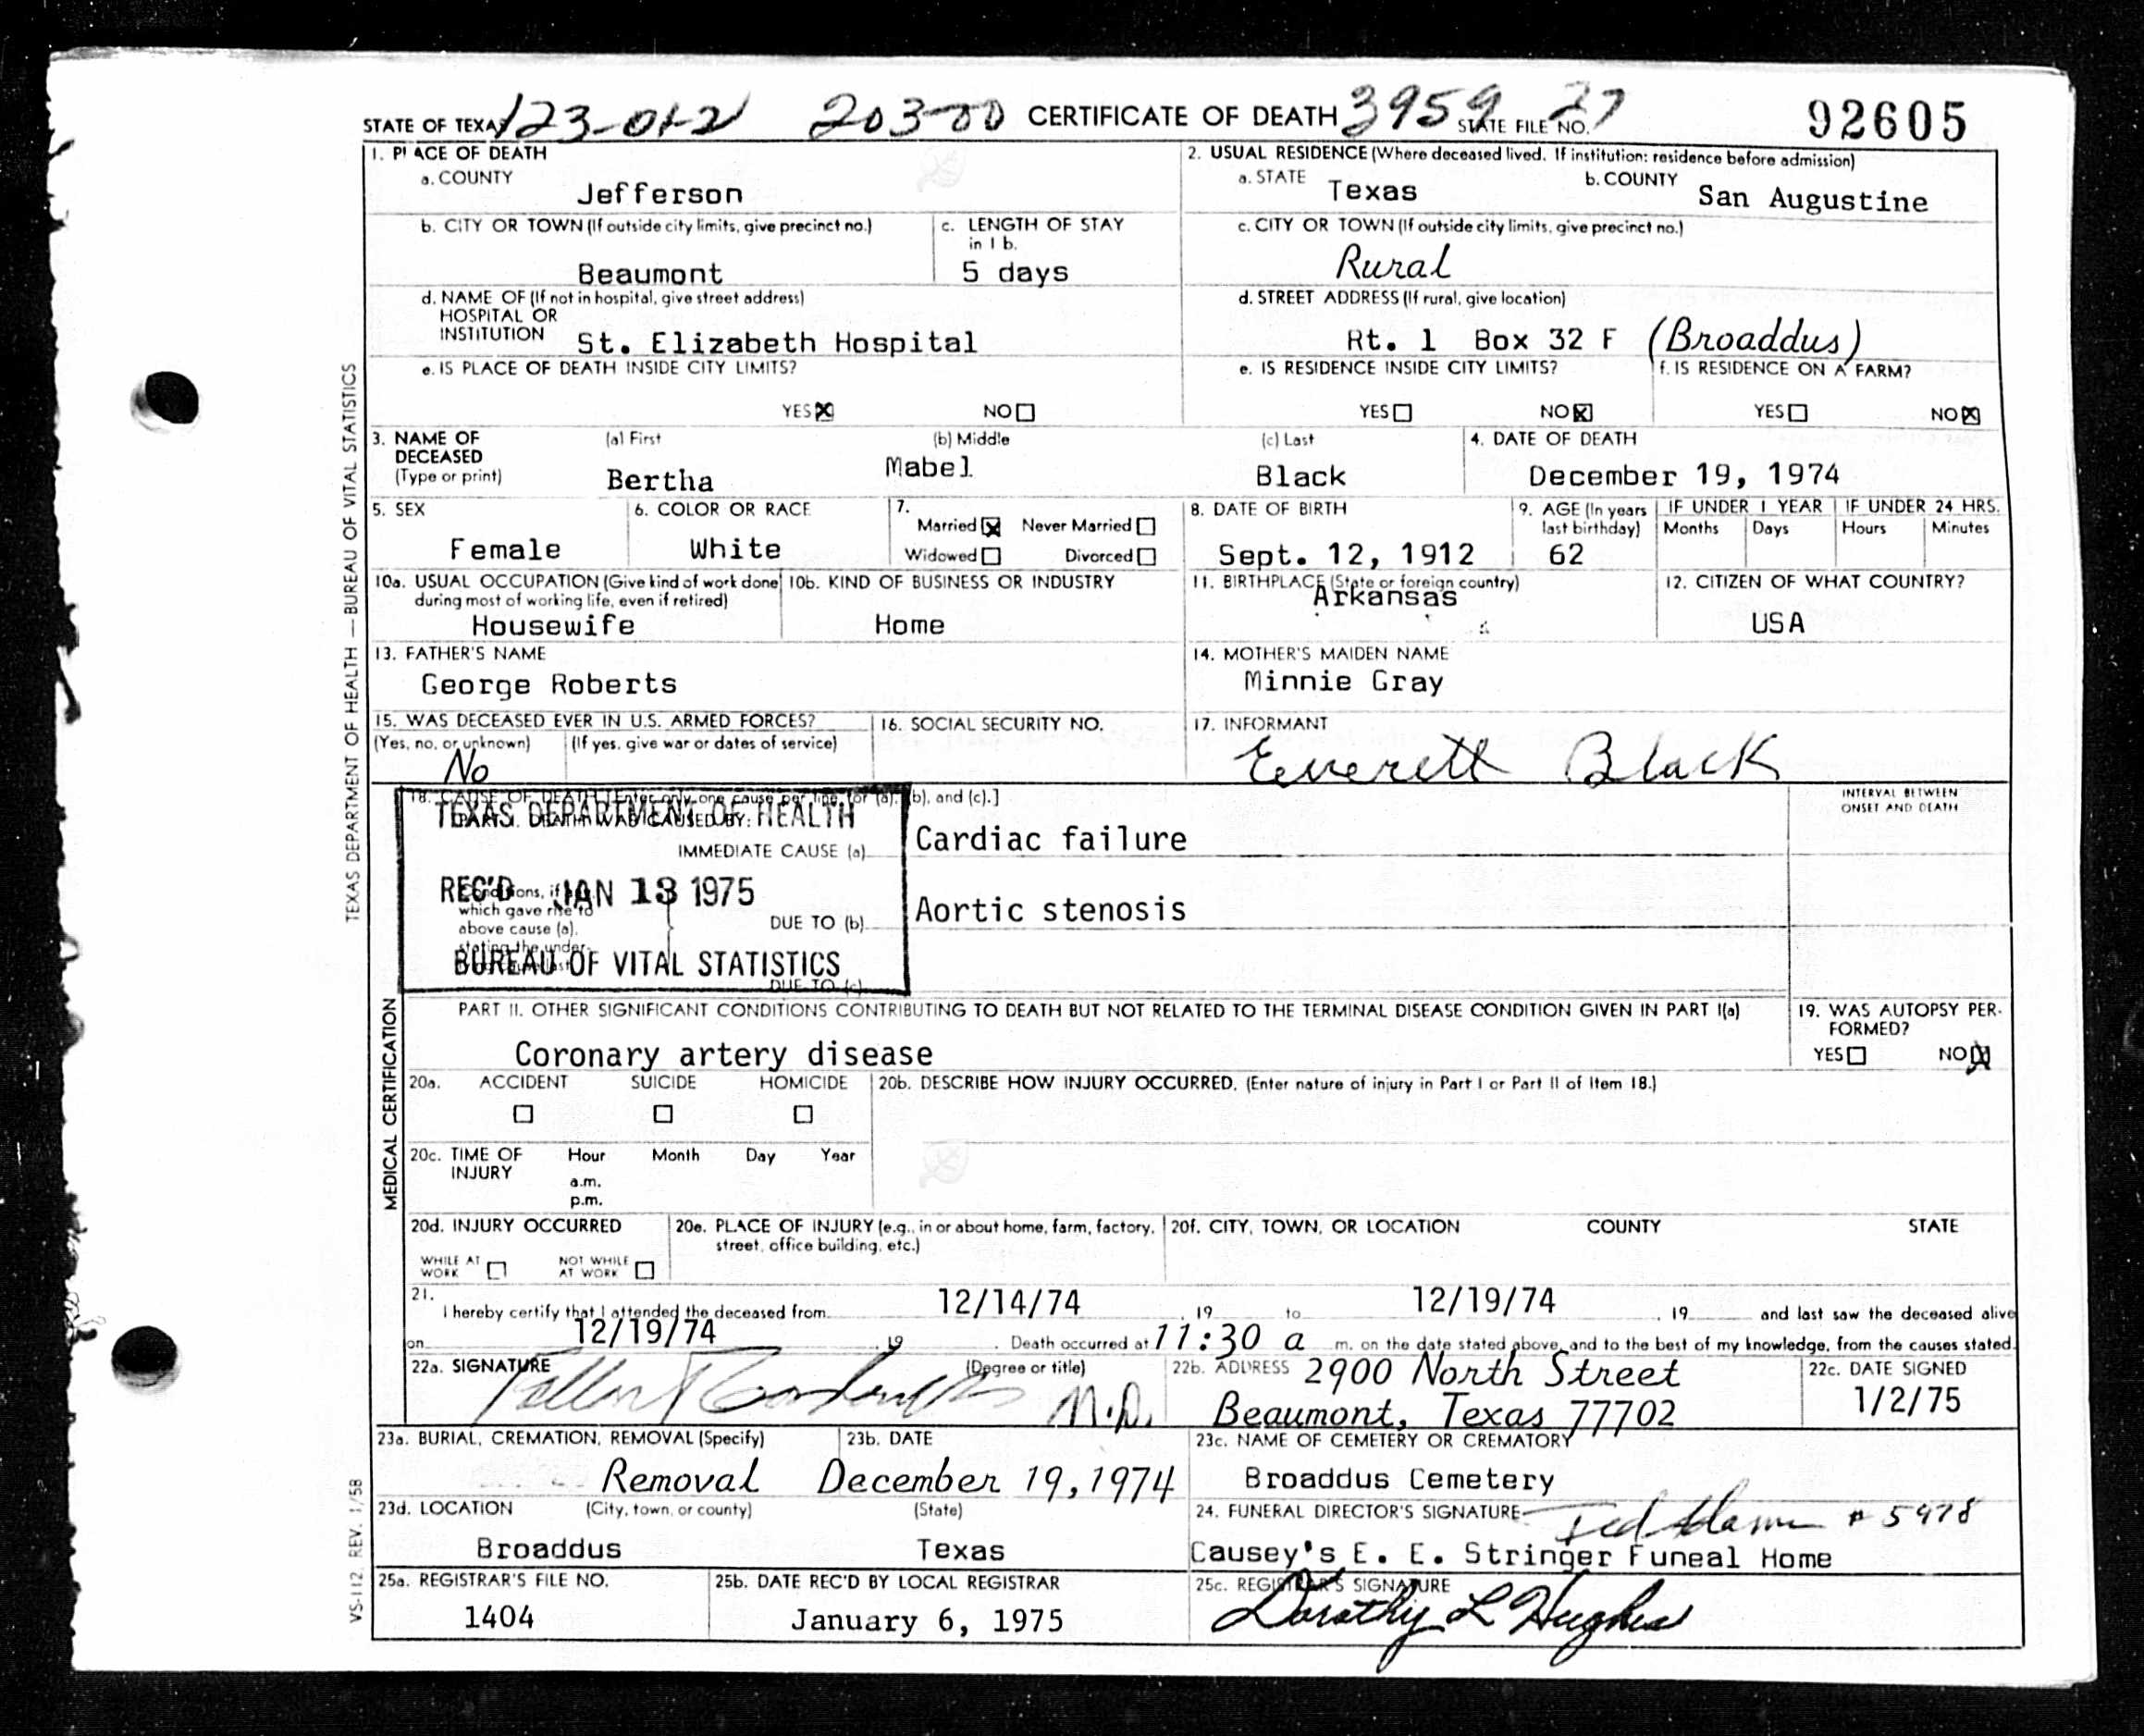 STATE OF TEXAS 123-01-2 203-00 CERTIFICATE OF DEATH 3959 STATE FILE NO. 27 92605
1. PLACE OF DEATH
a. COUNTY
Jefferson
2. USUAL RESIDENCE (Where deceased lived. If institution: residence before admission)
a. STATE Texas b. COUNTY San Augustine
b. CITY OR TOWN (If outside city limits, give precinct no.)
Beaumont
c. LENGTH OF STAY in 1 b.
5 days
c. CITY OR TOWN (If outside city limits, give precinct no.)
Rural
d. NAME OF (If not in hospital, give street address)
HOSPITAL OR
INSTITUTION St. Elizabeth Hospital
d. STREET ADDRESS (If rural, give location)
Rt. 1 Box 32 F (Broaddus)
e. IS PLACE OF DEATH INSIDE CITY LIMITS?
YES X NO
e. IS RESIDENCE INSIDE CITY LIMITS?
YES NO X
f. IS RESIDENCE ON A FARM?
YES NO X
3. NAME OF
DECEASED
(Type or print)
(a) First (b) Middle (c) Last
Bertha Mabel Black
4. DATE OF DEATH
December 19, 1974
5. SEX
Female
6. COLOR OR RACE
White
7.
Married X Never Married
Widowed Divorced
8. DATE OF BIRTH
Sept. 12, 1912
9. AGE (In years
last birthday)
62
IF UNDER 1 YEAR
Months Days
IF UNDER 24 HRS.
Hours Minutes
10a. USUAL OCCUPATION (Give kind of work done
during most of working life, even if retired)
Housewife
10b. KIND OF BUSINESS OR INDUSTRY
Home
11. BIRTHPLACE (State or foreign country)
Arkansas
12. CITIZEN OF WHAT COUNTRY?
USA
13. FATHER'S NAME
George Roberts
14. MOTHER'S MAIDEN NAME
Minnie Gray
15. WAS DECEASED EVER IN U.S. ARMED FORCES?
(Yes, no, or unknown) (If yes, give war or dates of service)
No
16. SOCIAL SECURITY NO.
17. INFORMANT
Everett Black
18. CAUSE OF DEATH [Enter only one cause per line for (a), (b), and (c).]
PART I. DEATH WAS CAUSED BY:
IMMEDIATE CAUSE (a) Cardiac failure
Conditions, if any,
which gave rise to
above cause (a),
stating the under-
lying cause last
DUE TO (b) Aortic stenosis
DUE TO (c)
TEXAS DEPARTMENT OF HEALTH
REC'D JAN 13 1975
BUREAU OF VITAL STATISTICS
INTERVAL BETWEEN
ONSET AND DEATH
PART II. OTHER SIGNIFICANT CONDITIONS CONTRIBUTING TO DEATH BUT NOT RELATED TO THE TERMINAL DISEASE CONDITION GIVEN IN PART I(a)
Coronary artery disease
19. WAS AUTOPSY PER-
FORMED?
YES NO X
20a. ACCIDENT SUICIDE HOMICIDE
20b. DESCRIBE HOW INJURY OCCURRED. (Enter nature of injury in Part I or Part II of Item 18.)
20c. TIME OF
INJURY
Hour Month Day Year
a.m.
p.m.
20d. INJURY OCCURRED
WHILE AT
WORK
NOT WHILE
AT WORK
20e. PLACE OF INJURY (e.g., in or about home, farm, factory,
street, office building, etc.)
20f. CITY, TOWN, OR LOCATION COUNTY STATE
21.
I hereby certify that I attended the deceased from 12/14/74, 19 to 12/19/74, 19 and last saw the deceased alive
on 12/19/74, 19. Death occurred at 11:30 a m. on the date stated above, and to the best of my knowledge, from the causes stated.
22a. SIGNATURE (Degree or title)
M.D.
22b. ADDRESS 2900 North Street
Beaumont, Texas 77702
22c. DATE SIGNED
1/2/75
23a. BURIAL, CREMATION, REMOVAL (Specify)
Removal
23b. DATE
December 19, 1974
23c. NAME OF CEMETERY OR CREMATORY
Broaddus Cemetery
23d. LOCATION (City, town, or county) (State)
Broaddus Texas
24. FUNERAL DIRECTOR'S SIGNATURE Ted # 5978
Causey's E. E. Stringer Funeal Home
25a. REGISTRAR'S FILE NO.
1404
25b. DATE REC'D BY LOCAL REGISTRAR
January 6, 1975
25c. REGISTRAR'S SIGNATURE
Dorothy L Hughes
TEXAS DEPARTMENT OF HEALTH — BUREAU OF VITAL STATISTICS
MEDICAL CERTIFICATION
VS-112, REV. 1/58